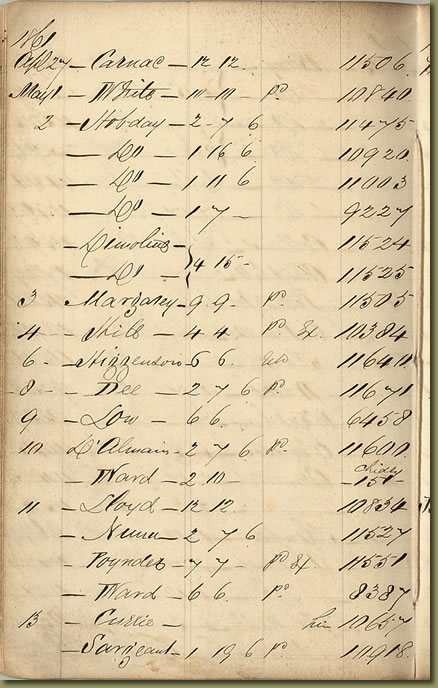 1861
Apl 27 – Carnac – 12 12 11506
May 1 – White – 10 – 10 – pd 10840
2 – Hobday – 2 – 7 6 11475
– Do – 1 16 6 10920
– Do – 1 11 6 11003
– Do – 1 7 – 9227
– 11524
– Do – } 4 15 – 11525
3 Margary – 9 9 – pd 11505
4 – Hill – 4 4 pd 10384
6 – Higgenson – 6 6
8 – Dee – 2 7 6 pd 11671
9 – Low – 6 6 6458
10 D'Almain – 2 7 6 pd 11600
– Ward – 2 10 – – 151 –
11 – Lloyd – 12 12 10834
– Nunn – 2 7 6 11527
– Poynder – 7 7 – pd 11551
– Ward – 6 6 pd 8387
13 – Currie – 10657
– Sargeant – 1 19 6 pd